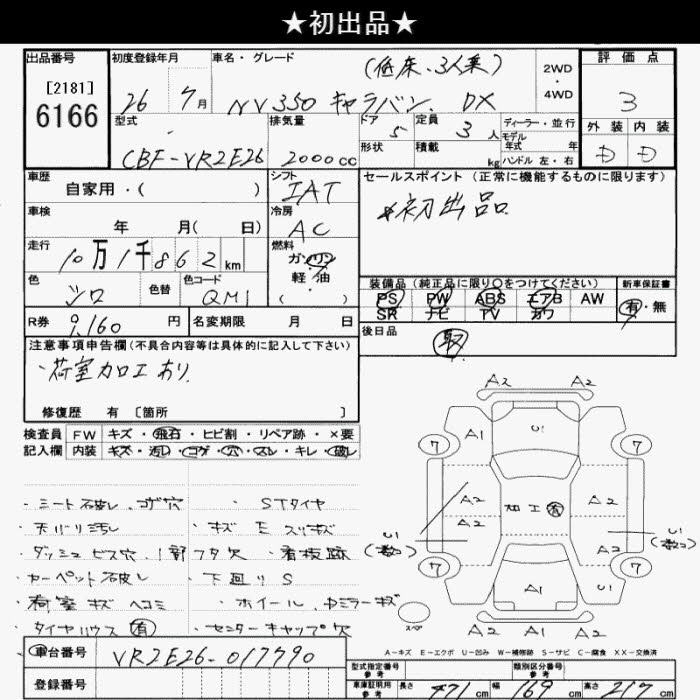 ★初出品★
出品番号
[2181]
6166
初度登録年月
26 7月
車名・グレード
(低床、3人乗)
NV350 キャラバン DX
2WD
・
4WD
評価点
3
外装 内装
D D
型式
CBF-VR2E26
排気量
2000cc
ドア
5
形状
定員
3人
積載
kg
ディーラー・並行
モデル
年式 年
ハンドル 左・右
車歴
自家用・( )
シフト
IAT
車検
年 月(日)
冷房
AC
走行
10万1千862km
燃料
ガソリン
軽・油
( )
色
シロ
色替
色コード
QM1
R券
9,160円
名変期限 月 日
セールスポイント(正常に機能するものに限ります)
*初出品。
装備品(純正品に限り○をつけてください)
PS PW ABS エアB AW
SR ナビ TV カワ
新車保証書
有・無
後日品
取
注意事項申告欄(不具合内容等は具体的に記入して下さい)
・荷室加工あり.
修復歴 有 [箇所 ]
検査員
記入欄
FW キズ・飛石・ヒビ割・リペア跡・×要
内装 キズ・汚レ・コゲ・穴・スレ・キレ・破レ
・シート破れ、コゲ穴 ・STタイヤ
・天バリ汚し ・キズ E スリキズ
・ダッシュビス穴、1部フタ欠 ・看板跡
・カーペット破し ・下廻りS
・荷室キズ ヘコミ ・ホイール、ミラーキズ
・タイヤハウス有 ・センターキャップ欠
A2 A2
A1 U1
7 7
A2 A2
加工有
A2
A2
U1
U1
7 7
A1 U1
スペア
A2 A1 A2
A-キズ E-エクボ U-凹み W-補修跡 S-サビ C-腐食 XX-交換済
車台番号
VR2E26-017790
登録番号
型式指定番号
参考
類別区分番号
参考
車庫証明用
参考
長さ 471cm
幅 169cm
高さ 217cm